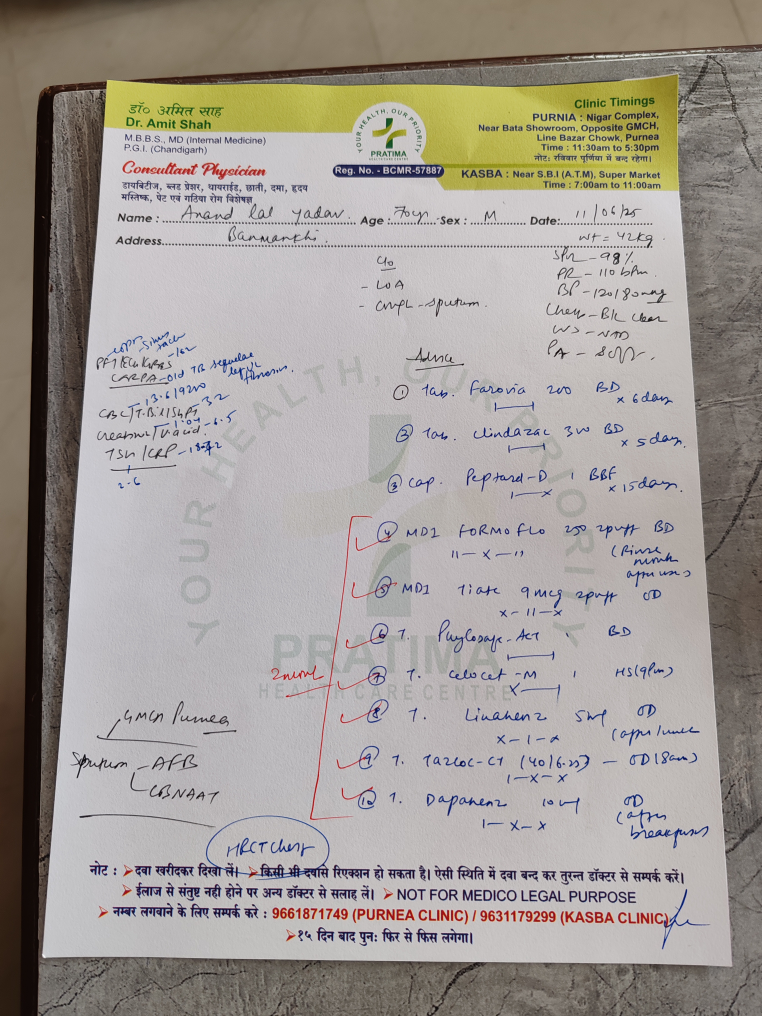 डॉ० अमित साह
Dr. Amit Shah
M.B.B.S., MD (Internal Medicine)
P.G.I. (Chandigarh)
Consultant Physician
डायबिटीज, ब्लड प्रेशर, थायराईड, छाती, दमा, हृदय
मस्तिष्क, पेट एवं गठिया रोग विशेषज्ञ
YOUR HEALTH, OUR PRIORITY
PRATIMA
HEALTH CARE CENTRE
Reg. No. - BCMR-57887
Clinic Timings
PURNIA : Nigar Complex,
Near Bata Showroom, Opposite GMCH,
Line Bazar Chowk, Purnea
Time : 11:30am to 5:30pm
नोट: रविवार पूर्णिया में बन्द रहेगा।
KASBA : Near S.B.I (A.T.M), Super Market
Time : 7:00am to 11:00am
Name : Anand lal yadav Age : 70yr Sex : M Date: 11/06/25
Address Banmankhi
wt = 42kg
c/o
- LOA
- cough - sputum
SPO2 - 98%
PR - 110 bpm
BP - 120/80 mmHg
Chest - B/L clear
CVS - NAD
PA - Soft
PFT/ECG/RBS - 162
CXRPA - Old TB sequelae
fibrosis
- 13.6/9200
CBC/T.Bil/SGPT - 3.2
1.04
Creatinine/U.acid - 6.5
TSH/CRP
2.6
Advice
① Tab. Farovia 200 BD x 6 days
② Tab. Clindazac 300 BD x 5 days
③ Cap. Peptard-D 1 BBF x 15 days
1-x
④ MDI FORMOFLO 250 2puff BD
11 - x - 11 (Rinse mouth after use)
⑤ MDI Tiate 9mcg 2puff OD
x - 11 - x
⑥ T. BD
⑦ T. -M 1 HS (9pm)
⑧ T. 5mg OD
x - 1 - x (after lunch)
⑨ T. Tazloc-CT (40/6.25) - OD (8am)
1 - x - x
⑩ T. 10mg OD
1 - x - x (after breakfast)
GMCH Purnea
Sputum - AFB
CBNAAT
HRCT Chest
YOUR HEALTH, OUR PRIORITY
PRATIMA
HEALTH CARE CENTRE
नोट : ➤ दवा खरीदकर दिखा लें। ➤ किसी भी दवासे रिएक्शन हो सकता है। ऐसी स्थिति में दवा बन्द कर तुरन्त डॉक्टर से सम्पर्क करें।
➤ ईलाज से संतुष्ट नही होने पर अन्य डॉक्टर से सलाह लें। ➤ NOT FOR MEDICO LEGAL PURPOSE
➤ नम्बर लगवाने के लिए सम्पर्क करे : 9661871749 (PURNEA CLINIC) / 9631179299 (KASBA CLINIC)
➤ १५ दिन बाद पुन: फिर से फिस लगेगा।